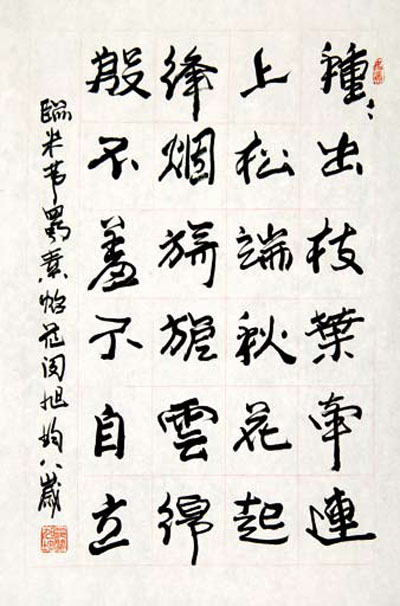 種〻出枝葉牽連
上松端秋花起
絳烟旖旎雲錦
殷不羞不自立
臨米芾蜀素帖八歲